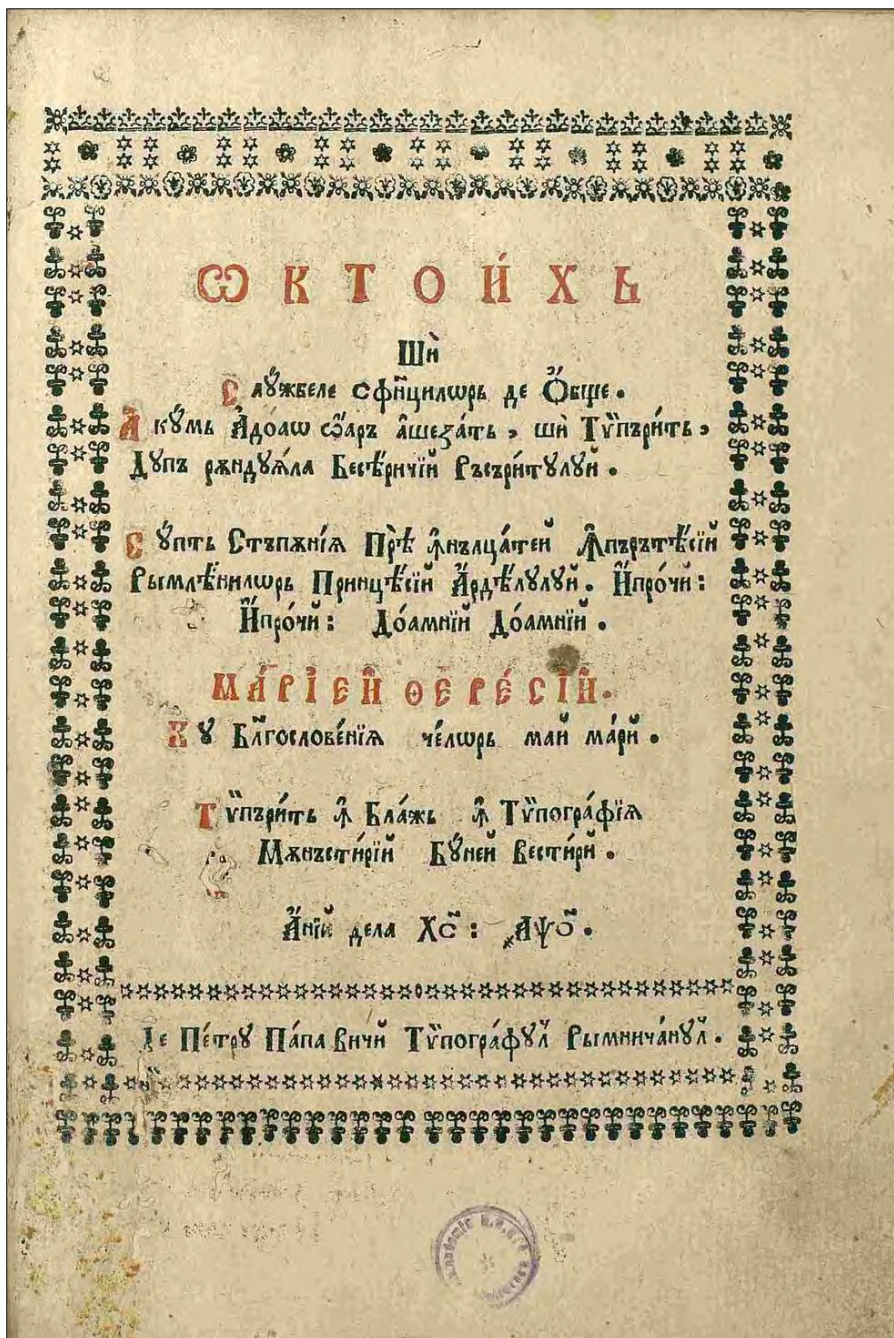 Ѡ К Т О И́ Х Ь
Шѝ
Слꙋ́жбеле Сфн҃цилѡрь де Ѻ҆́бще.
А҆кꙋ́мь А҆до́аѡ ѡ҆́аръ а҆шеꙁа́ть, шѝ Тѷпъри́ть,
Дꙋпъ рѫндꙋѧ́ла Бесѣ́ричїй Ръсъри́тꙋлꙋй.
Сꙋпть Стъпѫнїѧ Прѣ ꙟ҆нълца́тей ꙟ҆пърътѣ́сїй
Рымлѣ́нилѡрь Принцѣ́сїй А҆рдѣ́лꙋлꙋй. И҆про́чй:
И҆про́чй: До́амнїй До́амнїй.
МАРІ́ЕЙ ѲЕРЕ́СІЙ.
Кꙋ Бл҃гослове́нїѧ че́лѡрь май ма́рй.
Тѷпъри́ть ꙟ҆ Бла́жь ꙟ҆ Тѷпогра́фїѧ
Мѫнъсти́рїй Бꙋ́ней Вести́рй.
А҆нїй дела Хс҃: ҂АѰѺ҃.
Де Пе́трꙋ Па́па вичй Тѷпогра́фꙋл Рымнича́нꙋл.